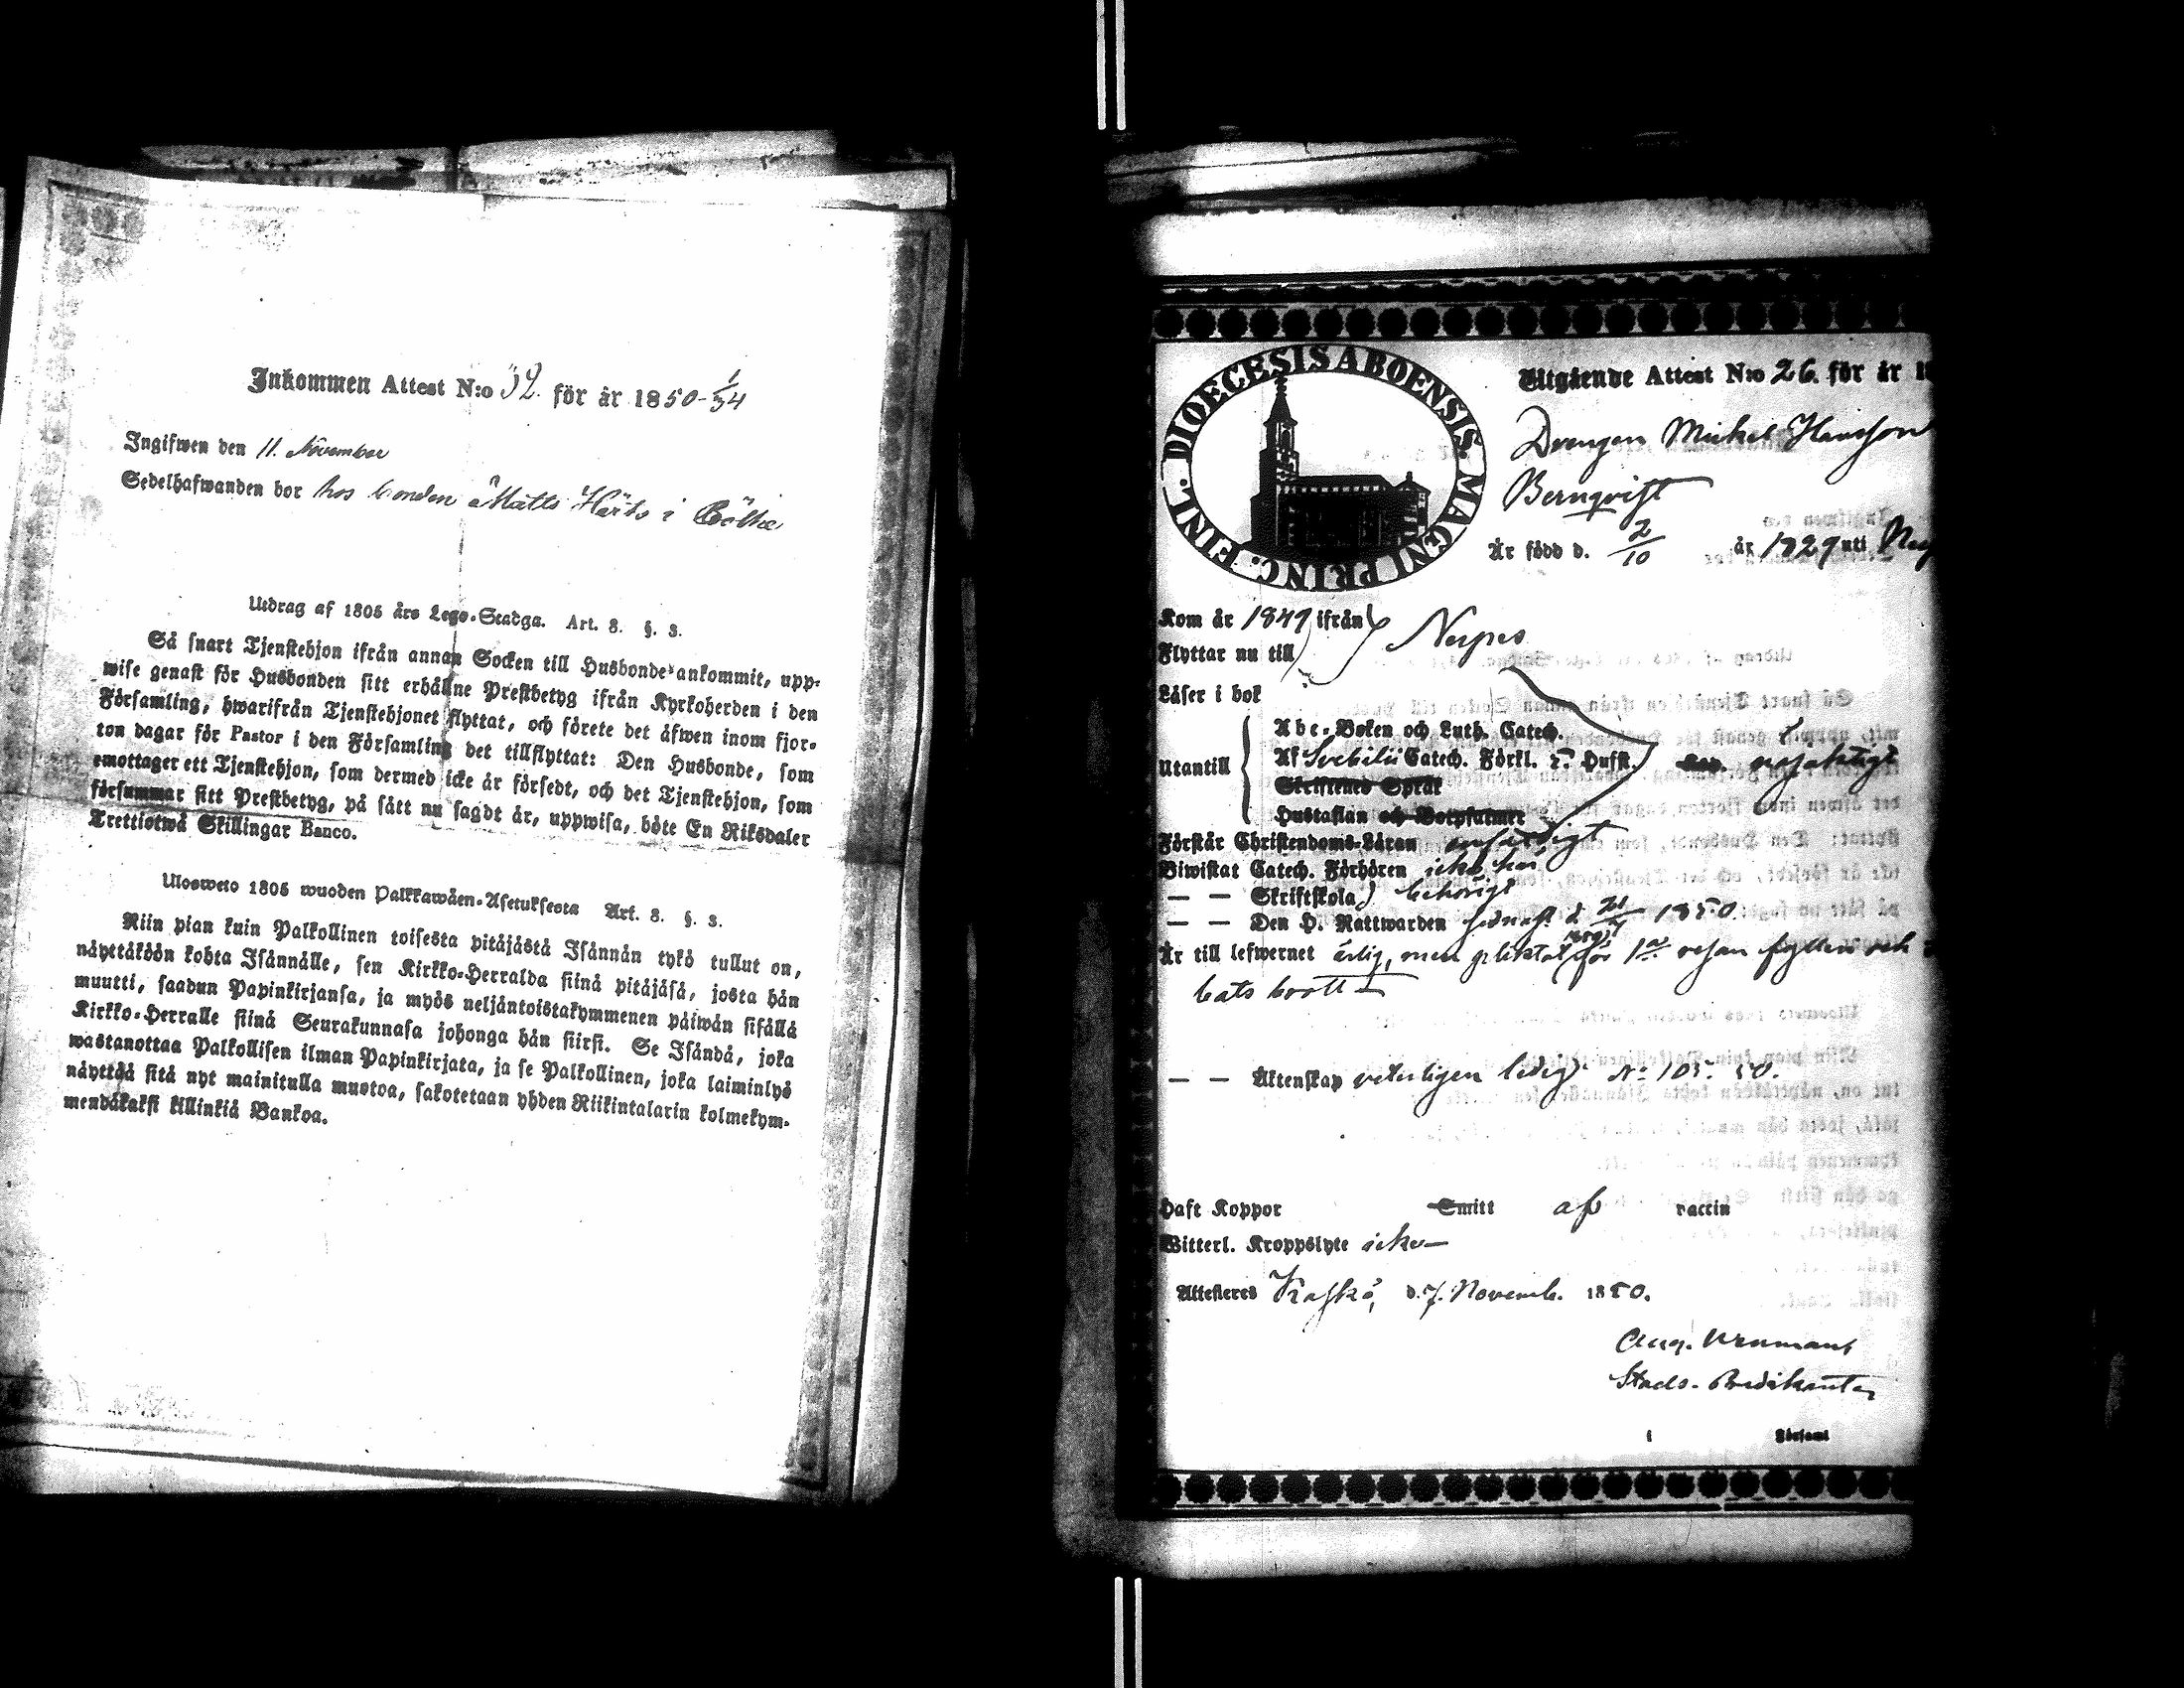 Inkommen Attest N:o 32. för år 1850-1/34
Ingifwen den 11. November
Sedelhafwanden bor hos bonden Matts Härts i Böhle
Utdrag af 1805 års Lego-Stadga. Art. 8. §. 3.
Så snart Tjenstehjon ifrån annan Socken till Husbonde ankommit, upp-
wise genast för Husbonden sitt erhållne Prestbetyg ifrån Kyrkoherden i den
Församling, hwarifrån Tjenstehjonet flyttat, och förete det äfwen inom fjor-
ton dagar för Pastor i den Församling det tillflyttat: Den Husbonde, som
emottager ett Tjenstehjon, som dermed icke är försedt, och det Tjenstehjon, som
försummar sitt Prestbetyg, på sätt nu sagdt är, uppwisa, böte En Riksdaler
Trettiotwå Skillingar Banco.
Ulosweto 1805 wuoden Palkkawäen-Asetuksesta Art. 8. §. 3.
Niin pian kuin Palkollinen toisesta pitäjästä Isännän tykö tullut on,
näyttäköön kohta Isännälle, sen Kirkko-Herralda siinä pitäjäsä, josta hän
muutti, saadun Papinkirjansa, ja myös neljäntoistakymmenen päiwän sisällä
Kirkko-Herralle siinä Seurakunnasa johonga hän siirsi. Se Isändä, joka
wastanottaa Palkollisen ilman Papinkirjata, ja se Palkollinen, joka laiminlyö
näyttää sitä nyt mainitulla muotoa, sakotetaan yhden Riikintalarin kolmekym-
mendäkaksi killinkiä Bankoa.
DIOECESIS ABOENSIS. MAGNI PRINC. FINL.
Utgående Attest N:o 26. för år 1
Drengen Mickel Hansson
Bernqvist
Är född d. 2/10 år 1829 uti
Kom år 1849 ifrån
Flyttar nu till Nerpes
Läser i bok
Utantill
Abc-Boken och Luth. Catech.
Af Svebilii Catech. Förkl. Hust. nöjaktigt
Skriftenes Språk
Hustaflan och Botpsalmer
Förstår Christendoms-Läran
Biwistat Catech. Förhören icke här
— — Skriftskola behörigt
— — Den H. Nattwarden sednast d. 1850
Är till lefwernet ärlig, men pliktat för 1a resan fylleri och
— — Äktenskap veterligen ledig. No 105. 50.
Haft Koppor Smitt af vaccin
Witterl. Kroppslyte icke—
Attesteres Kaskö, d. 7. Novemb. 1850.
Stads-Predikant
i Församl